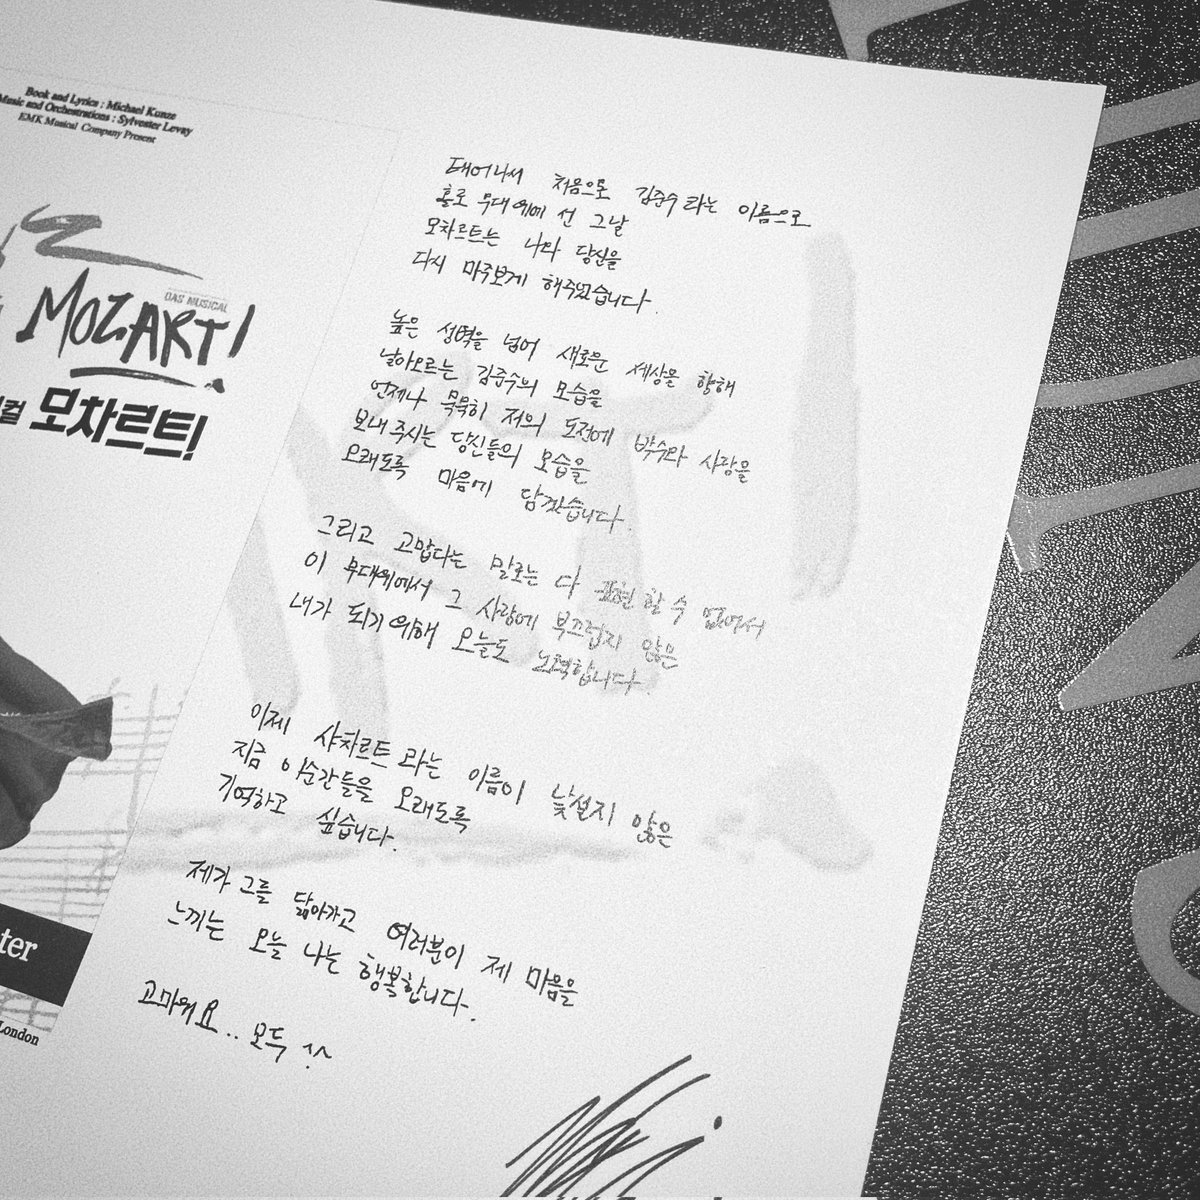 Book and Lyrics : Michael Kunze
Music and Orchestrations : Sylvester Levay
EMK Musical Company Present
DAS MUSICAL
MOZART!
모차르트!
ter
London
태어나서 처음으로 김준수라는 이름으로
홀로 무대 위에 선 그날
모차르트는 나와 당신을
다시 마주보게 해주었습니다.
높은 성벽을 넘어 새로운 세상을 향해
날아오르는 김준수의 모습을
언제나 묵묵히 저의 도전에 박수와 사랑을
보내주시는 당신들의 모습을
오래도록 마음에 담겠습니다.
그리고 고맙다는 말로는 다 표현할 수 없어서
이 무대위에서 그 사랑에 부끄럽지 않은
내가 되기 위해 오늘도 노력합니다.
이제 샤차르트라는 이름이 낯설지 않은
지금 이순간들을 오래도록
기억하고 싶습니다.
제가 그를 닮아가고 여러분이 제 마음을
느끼는 오늘 나는 행복합니다.
고마워요.. 모두 ^^